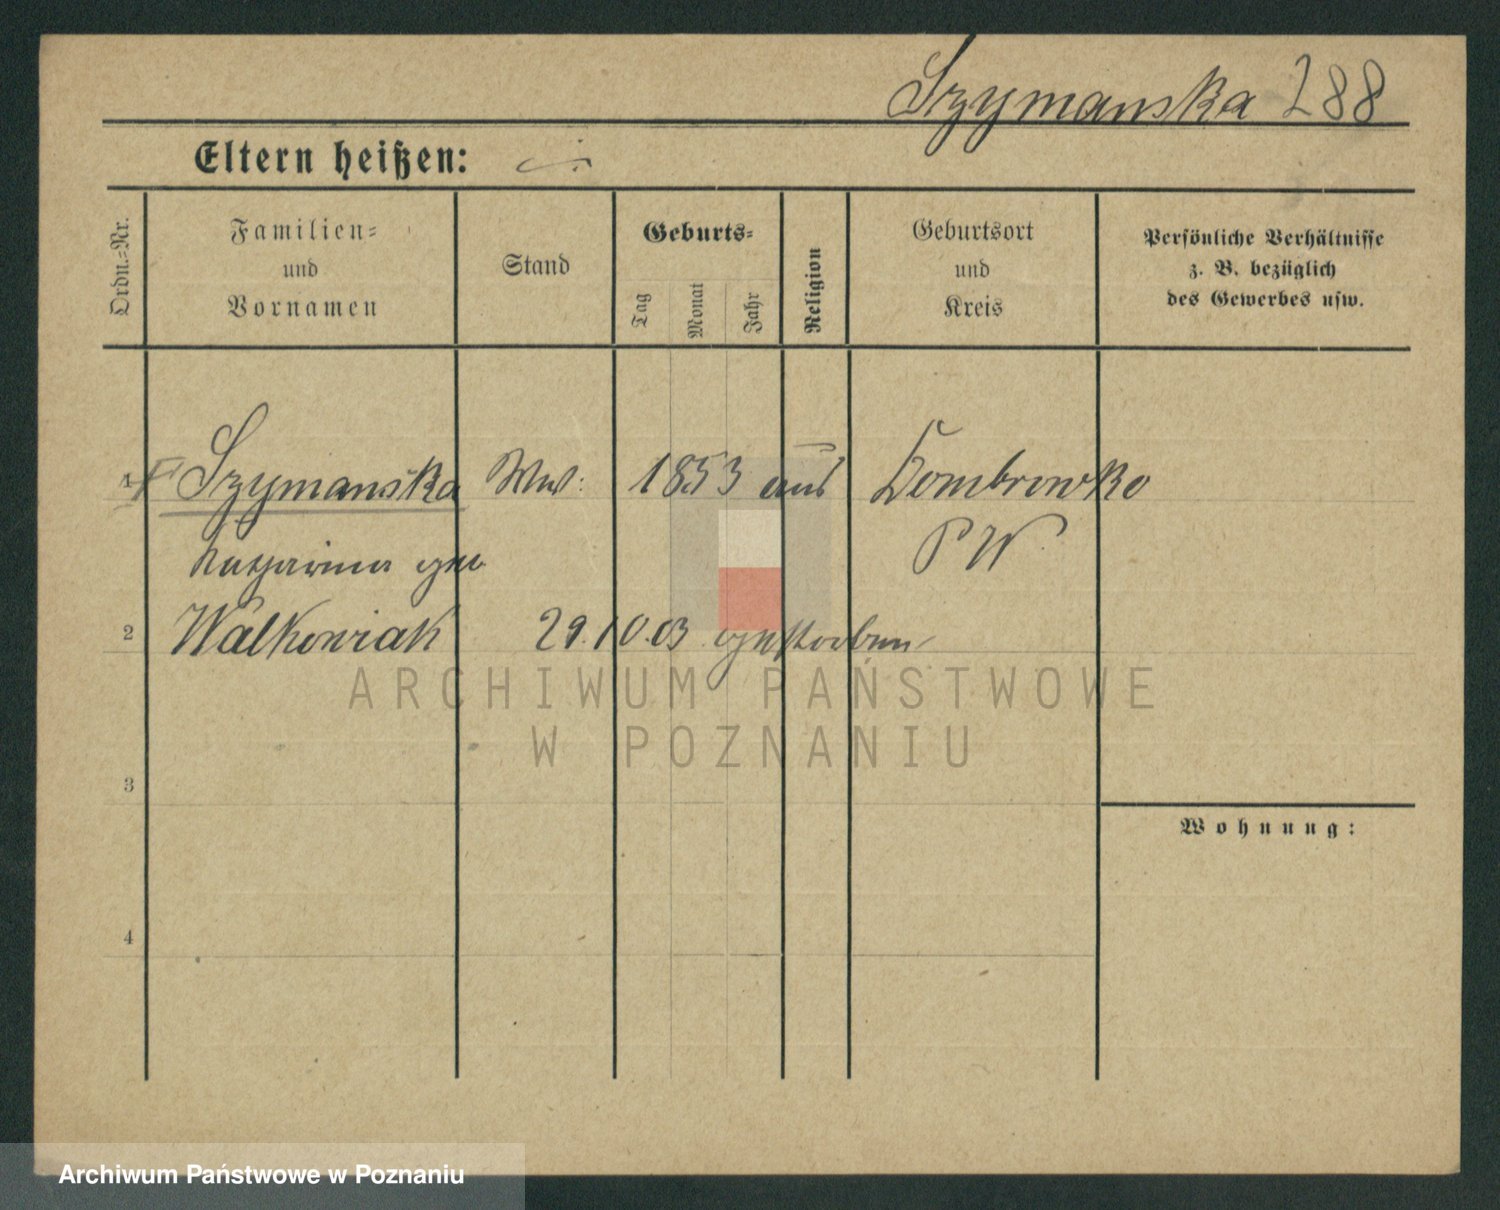 Szymanska 288
Eltern heißen:
Ordn.-Nr.
Familien-
und
Vornamen
Stand
Geburts-
Tag
Monat
Jahr
Religion
Geburtsort
und
Kreis
Persönliche Verhältnisse
z. B. bezüglich
des Gewerbes usw.
1 Szymanska Ww: 1853 Dombrowko
Katharina geb
P W.
2 Walkowiak 29.10.03 gestorben
ARCHIWUM PAŃSTWOWE
W POZNANIU
3
Wohnung:
4
Archiwum Państwowe w Poznaniu